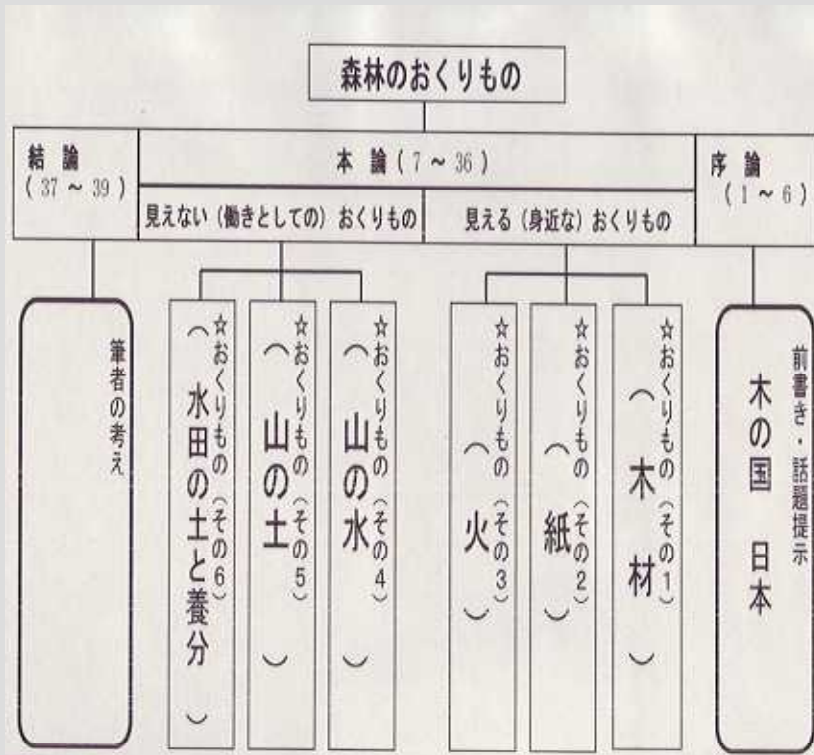 森林のおくりもの
序論
(1～6)
本論(7～36)
結論
(37～39)
見える(身近な)おくりもの
見えない(働きとしての)おくりもの
前書き・話題提示
木の国　日本
☆おくりもの(その1)
(木材)
☆おくりもの(その2)
(紙)
☆おくりもの(その3)
(火)
☆おくりもの(その4)
(山の水)
☆おくりもの(その5)
(山の土)
☆おくりもの(その6)
(水田の土と養分)
筆者の考え